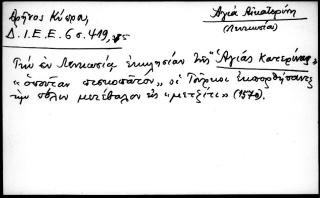 Θρῆνος Κύπρου,
Δ.Ι.Ε.Ε. 6 σ. 419,
Ἁγία Αἰκατερίνη
(Λευκωσία)
Τὴν ἐν Λευκωσίᾳ ἐκκλησίαν τῆς "Ἁγίας Κατερίνας,
"ὁποῦταν πισκοπᾶτον" οἱ Τοῦρκοι ἐκπορθήσαντες
τὴν πόλιν μετέβαλον εἰς "μετζίτι" (1570).